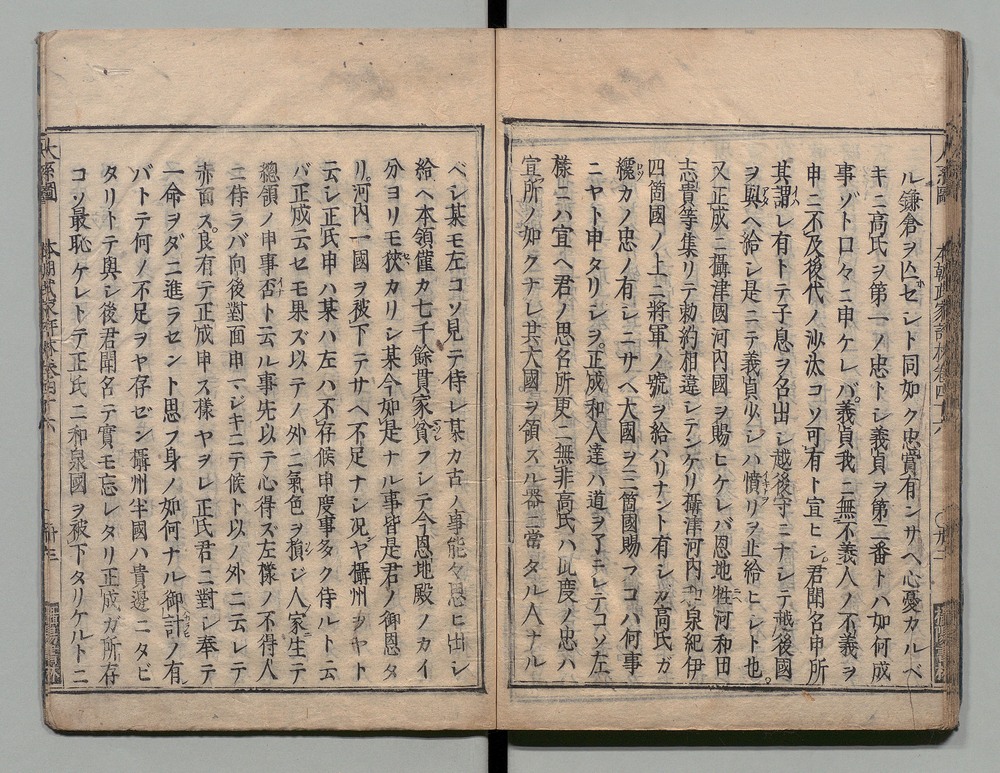 ル鎌倉ヲ亡セシト同如ク忠賞有ンサヘ心憂カルベ
キニ高氏ヲ第一ノ忠トシ義貞ヲ第二番トハ如何成
事ゾト口々ニ申ケレバ義貞我ニ無不義人ノ不義ヲ
申ニ不及後代ノ沙汰コソ可有ト宣ヒシ君聞名申所
其謂レ有トテ子息ヲ名出シ越後守ニナシテ越後國
ヲ與ヘ給シ是ニテ義貞少シハ憤リヲ止給ヒシト也
又正成ニ攝津國河内國ヲ賜ヒケレバ恩地牲河和田
志貴等集リテ勅約相違シテンケリ攝津河内和泉紀伊
四箇國ノ上ニ將軍ノ號ヲ給ハリナント有シガ高氏ガ
纔カノ忠ノ有シニサヘ大國ヲ三箇國賜フコハ何事
ニヤト申タリシヲ正成和人達ハ道ヲ了ニレテコソ左
樣ニハ宜ヘ君ノ思名所更ニ無非高氏ハ此度ノ忠ハ
宣所ノ如クナレ共大國ヲ領スル器ニ當タル人ナル
ベシ某モ左コソ見テ侍レ某カ古ノ事能々思ヒ出シ
給ヘ本領僅カ七千餘貫家貧フシテ今恩地殿ノカイ
分ヨリモ狹カリシ某今如是ナル事皆是君ノ御恩タ
リ河内一國ヲ被下テサヘ不足ナシ况ヤ攝州ヲヤト
云シ正氏申ハ某ハ左ハ不存候申度事多ク侍ルトニ云
バ正成云セモ果ズ以テノ外ニ氣色ヲ損ジ人家生テ
總領ノ申事否ト云ル事先以テ心得ズ左樣ノ不得人
ニ侍ラバ向後對面申マジキニテ候ト以ノ外ニ云レテ
赤面ス良有テ正成申ス樣ヤヲレ正氏君ニ對シ奉テ
一命ヲダニ進ラセント思フ身ノ如何ナル御計ノ有
バトテ何ノ不足ヲヤ存ゼン攝州半國ハ貴邊ニタビ
タリトテ與シ後君聞名テ實モ忘レタリ正成ガ所存
コソ最恥ケレトテ正氏ニ和泉國ヲ被下タリケルトニ